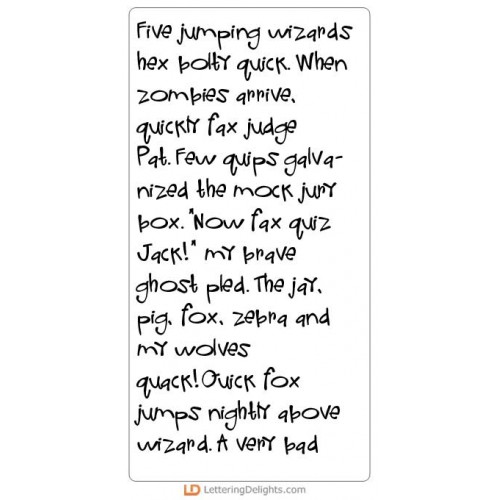 Five jumping wizards
hex bolty quick. When
zombies arrive,
quickly fax judge
Pat. Few quips galva-
nized the mock jury
box. "Now fax quiz
Jack!" my brave
ghost pled. The jay,
pig, fox, zebra and
my wolves
quack! Quick fox
jumps nightly above
wizard. A very bad
LD LetteringDelights.com